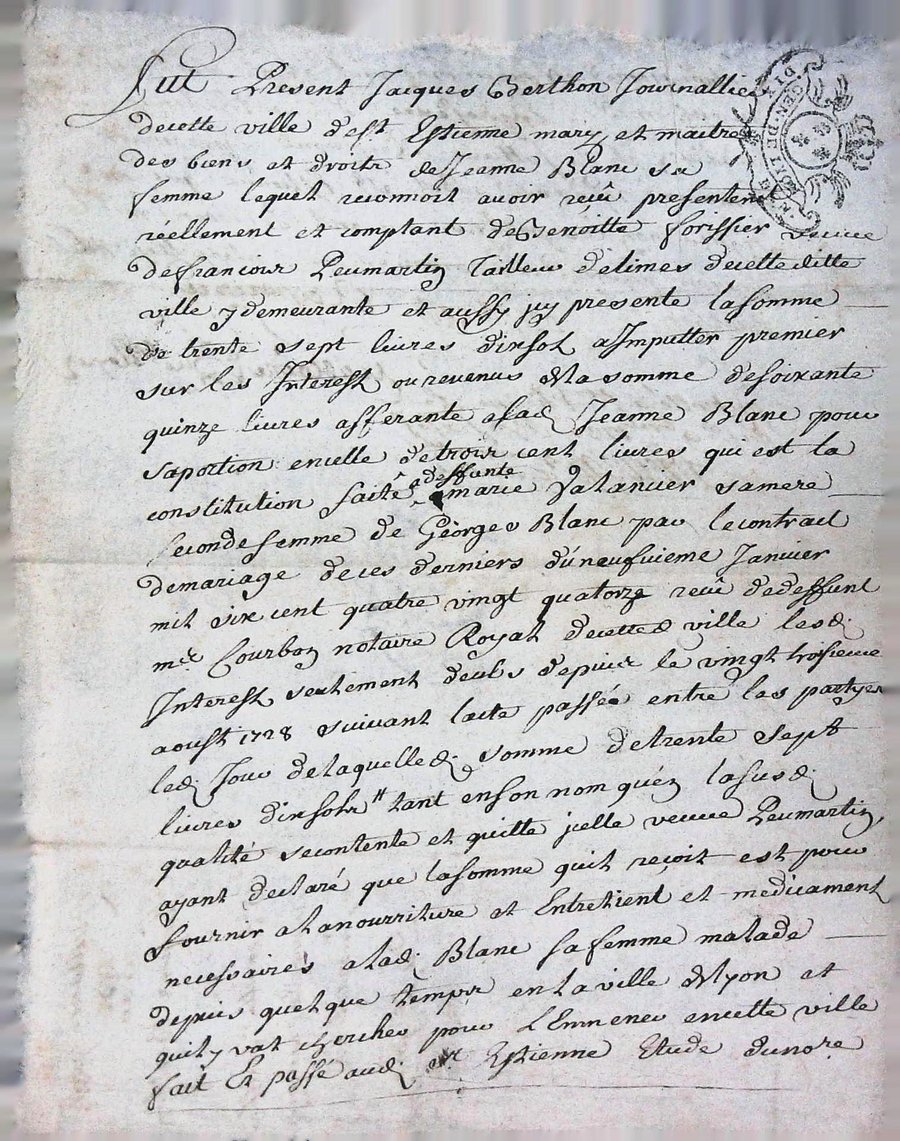 Fut Present Jacques Berthon Journallier
decette ville de St Estienne mary et maitre
des biens et droits de Jeanne Blanc sa
femme lequel reconnoit avoir reçû presentem
réellement et comptant de Benoitte forissier veuve
defrancois Peumartin Tailleur delimes decette ditte
ville y demeurante et aussy jcy presente lasomme
de trente sept livres dixsols aImputter premier
sur les Interest ou revenus de la somme desoixante
quinze livres afferante alad. Jeanne Blanc pour
saportion encelle detrois cent livres qui est la
constitution faite adeffunte marie Valancier samere
seconde femme de Georges Blanc par lecontract
demariage deces derniers du neufvieme Janvier
mil six cent quatre vingt quatorze reçû dedeffunt
me. Courbon notaire Royal decetted. ville lesd.
Interest seulement deubs depuis le vingt troisieme
aoust 1728 suivant lacte passé entre les partyes
led. Jour delaquelled. somme detrente sept
livres dixsols tant enson nom quen lasusd.
qualité secontente et quitte jcelle veuve Peumartin,
ayant declaré que lasomme quil reçoit est pour
fournir alanourriture et Entretient et medicament
necessaires alad. Blanc sa femme malade
depuis quelque temps en la ville de Lyon et
quil y vat chercher pour l'Emmener encette ville
fait Et passé aud. St. Estienne Etude dunore.
GEN. DE